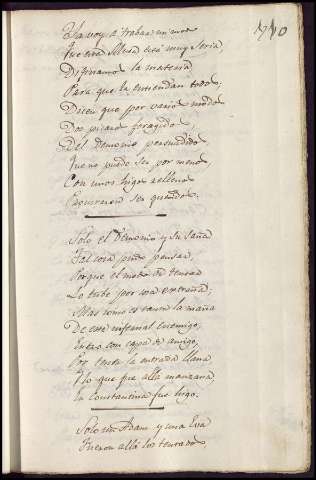 1710
Ya voy a trabar
que una Musa está muy seria,
Digamos la materia
Para que la entiendan todos;
Dicen que por varios modos
Dos picaros foragidos
Del Demonio persuadidos
Que no puede ser por menos
Con unos higos rellenos
Quisieron ser queridos.
Solo el Demonio y su saña
Tal cosa pudo pensar,
Porque el modo de tentar
Lo tubo por cosa extraña;
Mas como es tanta la maña
De ese infernal enemigo,
con capa de amigo,
Por tener la entrada llana,
Y lo que fue allá manzana,
En Constantina fue higo.
Solo un Adam y una Eva
Fueron allá los tentados,